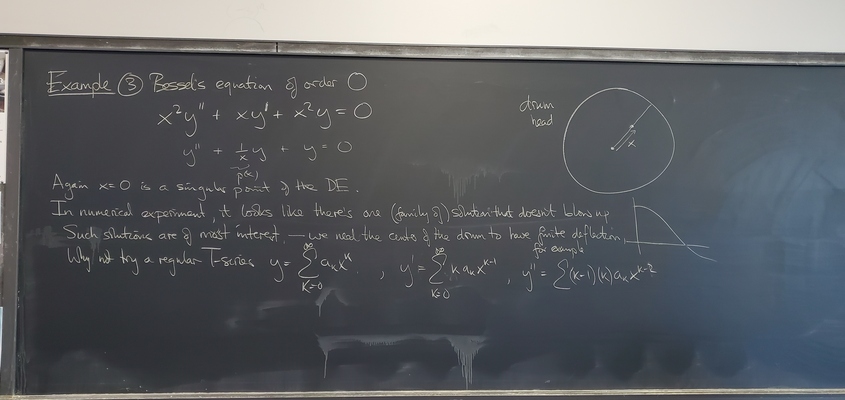 Example ③ Bessel's equation of order 0
x²y'' + xy' + x²y = 0
y'' + 1/x y + y = 0
p(x)
drum head
x
Again x=0 is a singular point of the DE.
In numerical experiment, it looks like there's are (family of) solution that doesn't blow up
Such solutions are of most interest, — we need the centre of the drum to have finite deflection,
for example
Why not try a regular T-series y = ∑_{k=0}^{∞} a_k x^k , y' = ∑_{k=0}^{∞} k a_k x^{k-1} , y'' = ∑(k-1)(k) a_k x^{k-2}